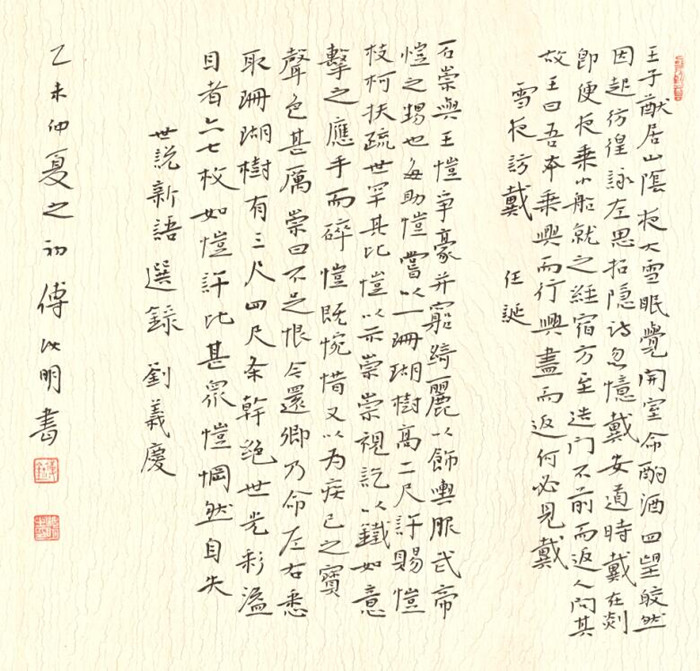 王子猷居山陰夜大雪眠覺開室命酌酒四望皎然
因起彷徨詠左思招隐诗忽憶戴安道時戴在剡
即便夜乘小船就之經宿方至造門不前而返人問其
故王曰吾本乘興而行興盡而返何必見戴
雪夜訪戴 任誕
石崇與王愷爭豪并窮綺麗以飾輿服武帝
愷之甥也每助愷嘗以一珊瑚樹高二尺許賜愷
枝柯扶疏世罕其比愷以示崇崇視訖以鐵如意
擊之應手而碎愷既惋惜又以为疾己之寶
聲色甚厲崇曰不足恨今還卿乃命左右悉
取珊瑚樹有三尺四尺条幹絕世光彩溢
目者六七枚如愷許比甚眾愷惘然自失
世說新語選錄 劉義慶
乙未仲夏之初傅明書